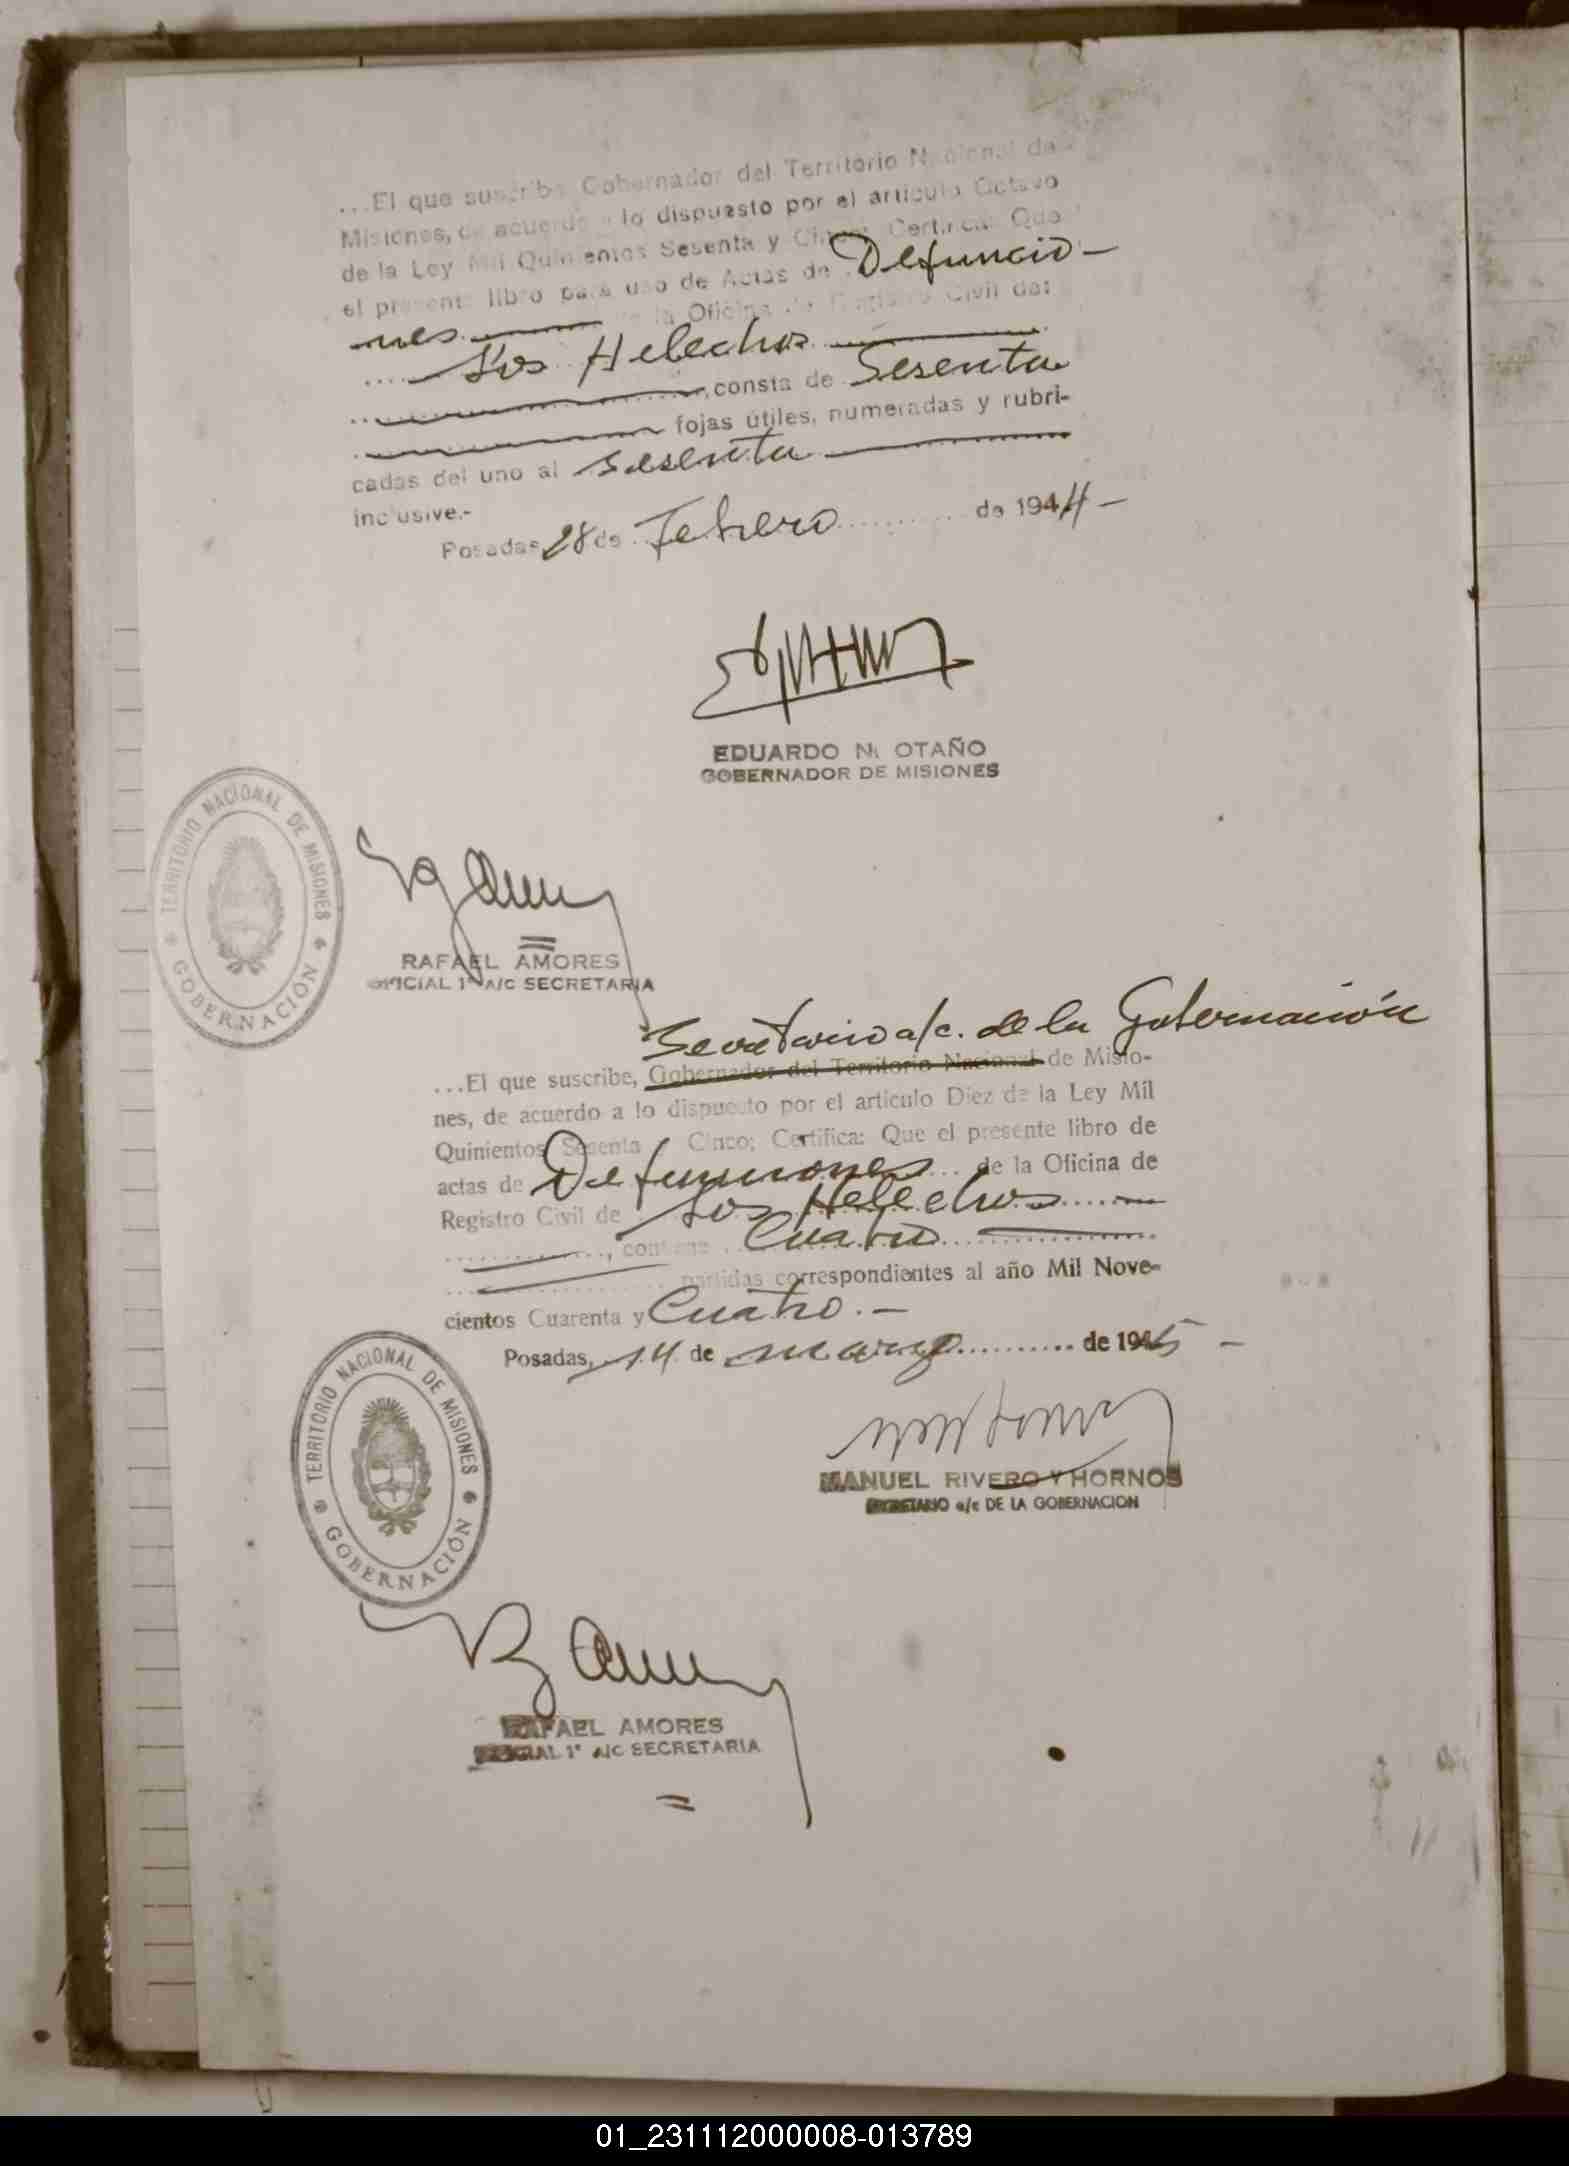 ...El que suscribe Gobernador del Territorio Nacional de
Misiones, de acuerdo a lo dispuesto por el artículo Octavo
de la Ley Mil Quinientos Sesenta y Cinco; Certifica: Que
el presente libro para uso de Actas de Defuncio-
nes de la Oficina de Registro Civil de:
Los Helechos
consta de Sesenta
fojas útiles, numeradas y rubri-
cadas del uno al sesenta
inclusive.-
Posadas 28 de Febrero de 1944-
EDUARDO N. OTAÑO
GOBERNADOR DE MISIONES
TERRITORIO NACIONAL DE MISIONES
GOBERNACIÓN
RAFAEL AMORES
OFICIAL 1° A/C SECRETARIA
Secretario a/c. de la Gobernación
...El que suscribe, Gobernador del Territorio Nacional de Misio-
nes, de acuerdo a lo dispuesto por el artículo Diez de la Ley Mil
Quinientos Sesenta y Cinco; Certifica: Que el presente libro de
actas de Defunciones de la Oficina de
Registro Civil de Los Helechos
, contiene Cuatro
partidas correspondientes al año Mil Nove-
cientos Cuarenta y Cuatro.-
Posadas, 14 de marzo de 1945-
TERRITORIO NACIONAL DE MISIONES
GOBERNACIÓN
MANUEL RIVERO Y HORNOS
SECRETARIO a/c DE LA GOBERNACION
RAFAEL AMORES
OFICIAL 1° A/C SECRETARIA
01_231112000008-013789